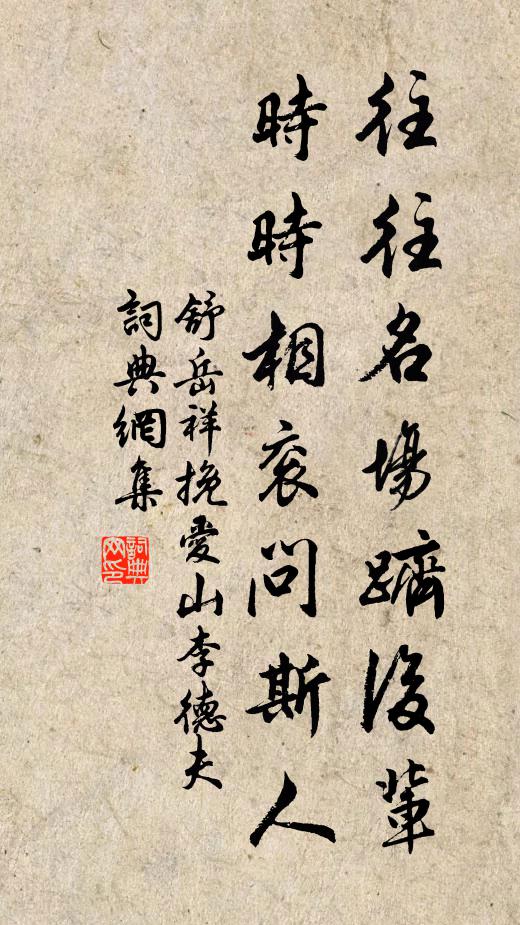 往往名場躋後輩
時時相衮問斯人
舒岳祥挽愛山李德夫
詞典網集
詞典网印